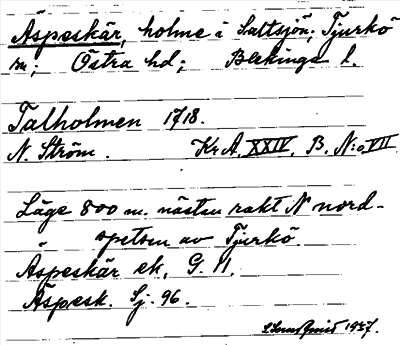 Äspeskär, holme i Saltsjön; Tjurkö
sn; Östra hd; Blekinge l.
Talholmen 1718.
N. Ström. Kr. A. XXIV. B. N:o VII
Läge 800 m. nästan rakt N nord-
spetsen av Tjurkö
Äspeskär ek, G. 11.
Äspesk. Sj. 96.
1937.